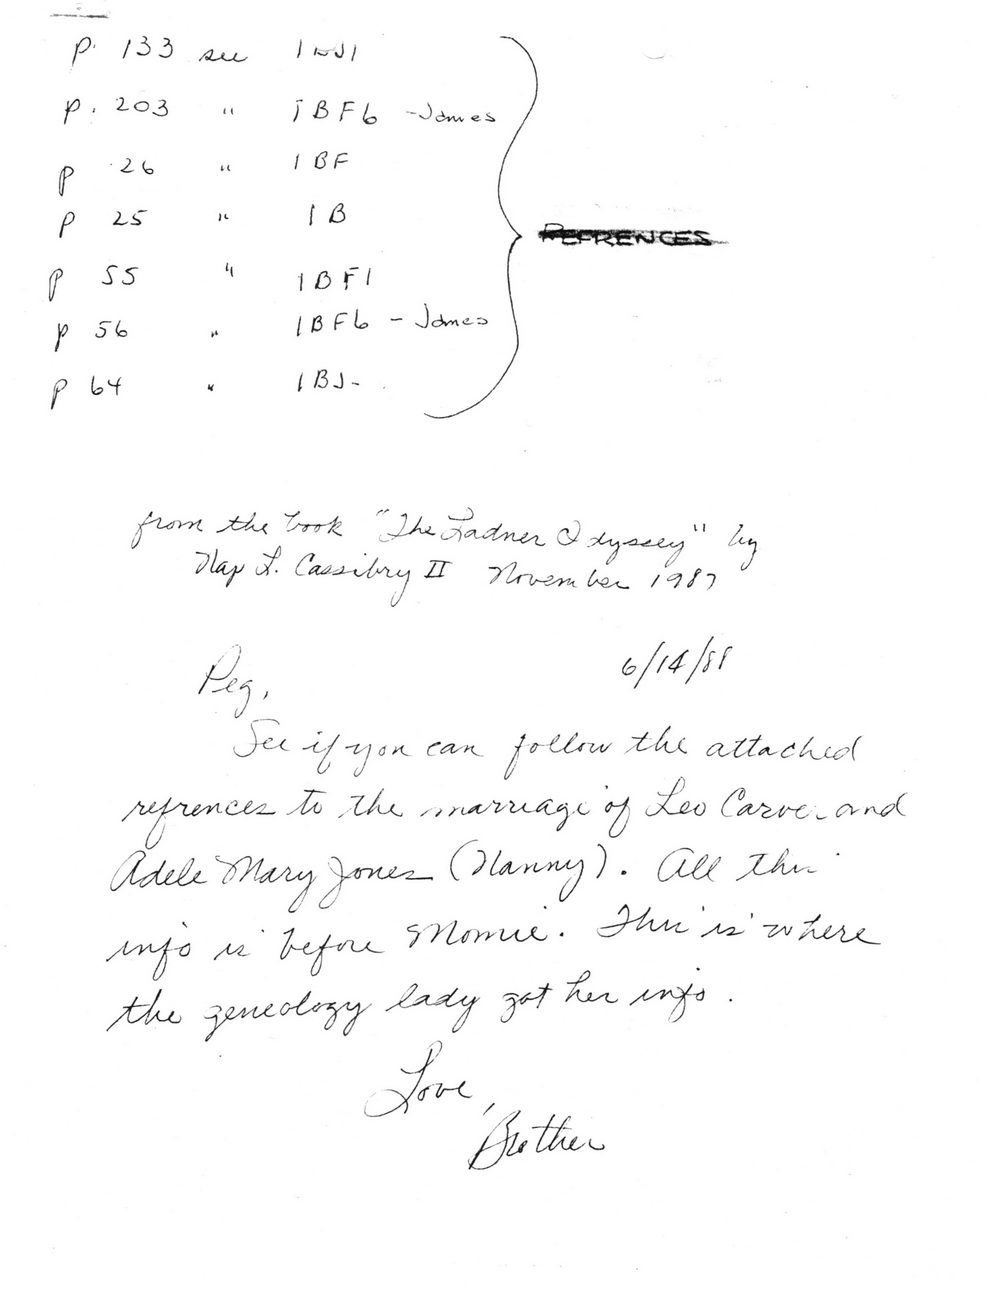 p. 133 see
p. 203 " 1BF6 - James
p 26 " 1BF
p 25 " 1B
p 55 " 1BF1
p 56 " 1BF6 - James
p 64 " 1BJ-
REFRENCES
from the book "The Ladner Odyssey" by
Nap L. Cassibry II November 1987
6/14/88
Peg,
See if you can follow the attached
refrences to the marriage of Leo Carver and
Adele Mary Jones (Nanny). All this
info is before Momie. This is where
the geneology lady got her info.
Love,
Brother